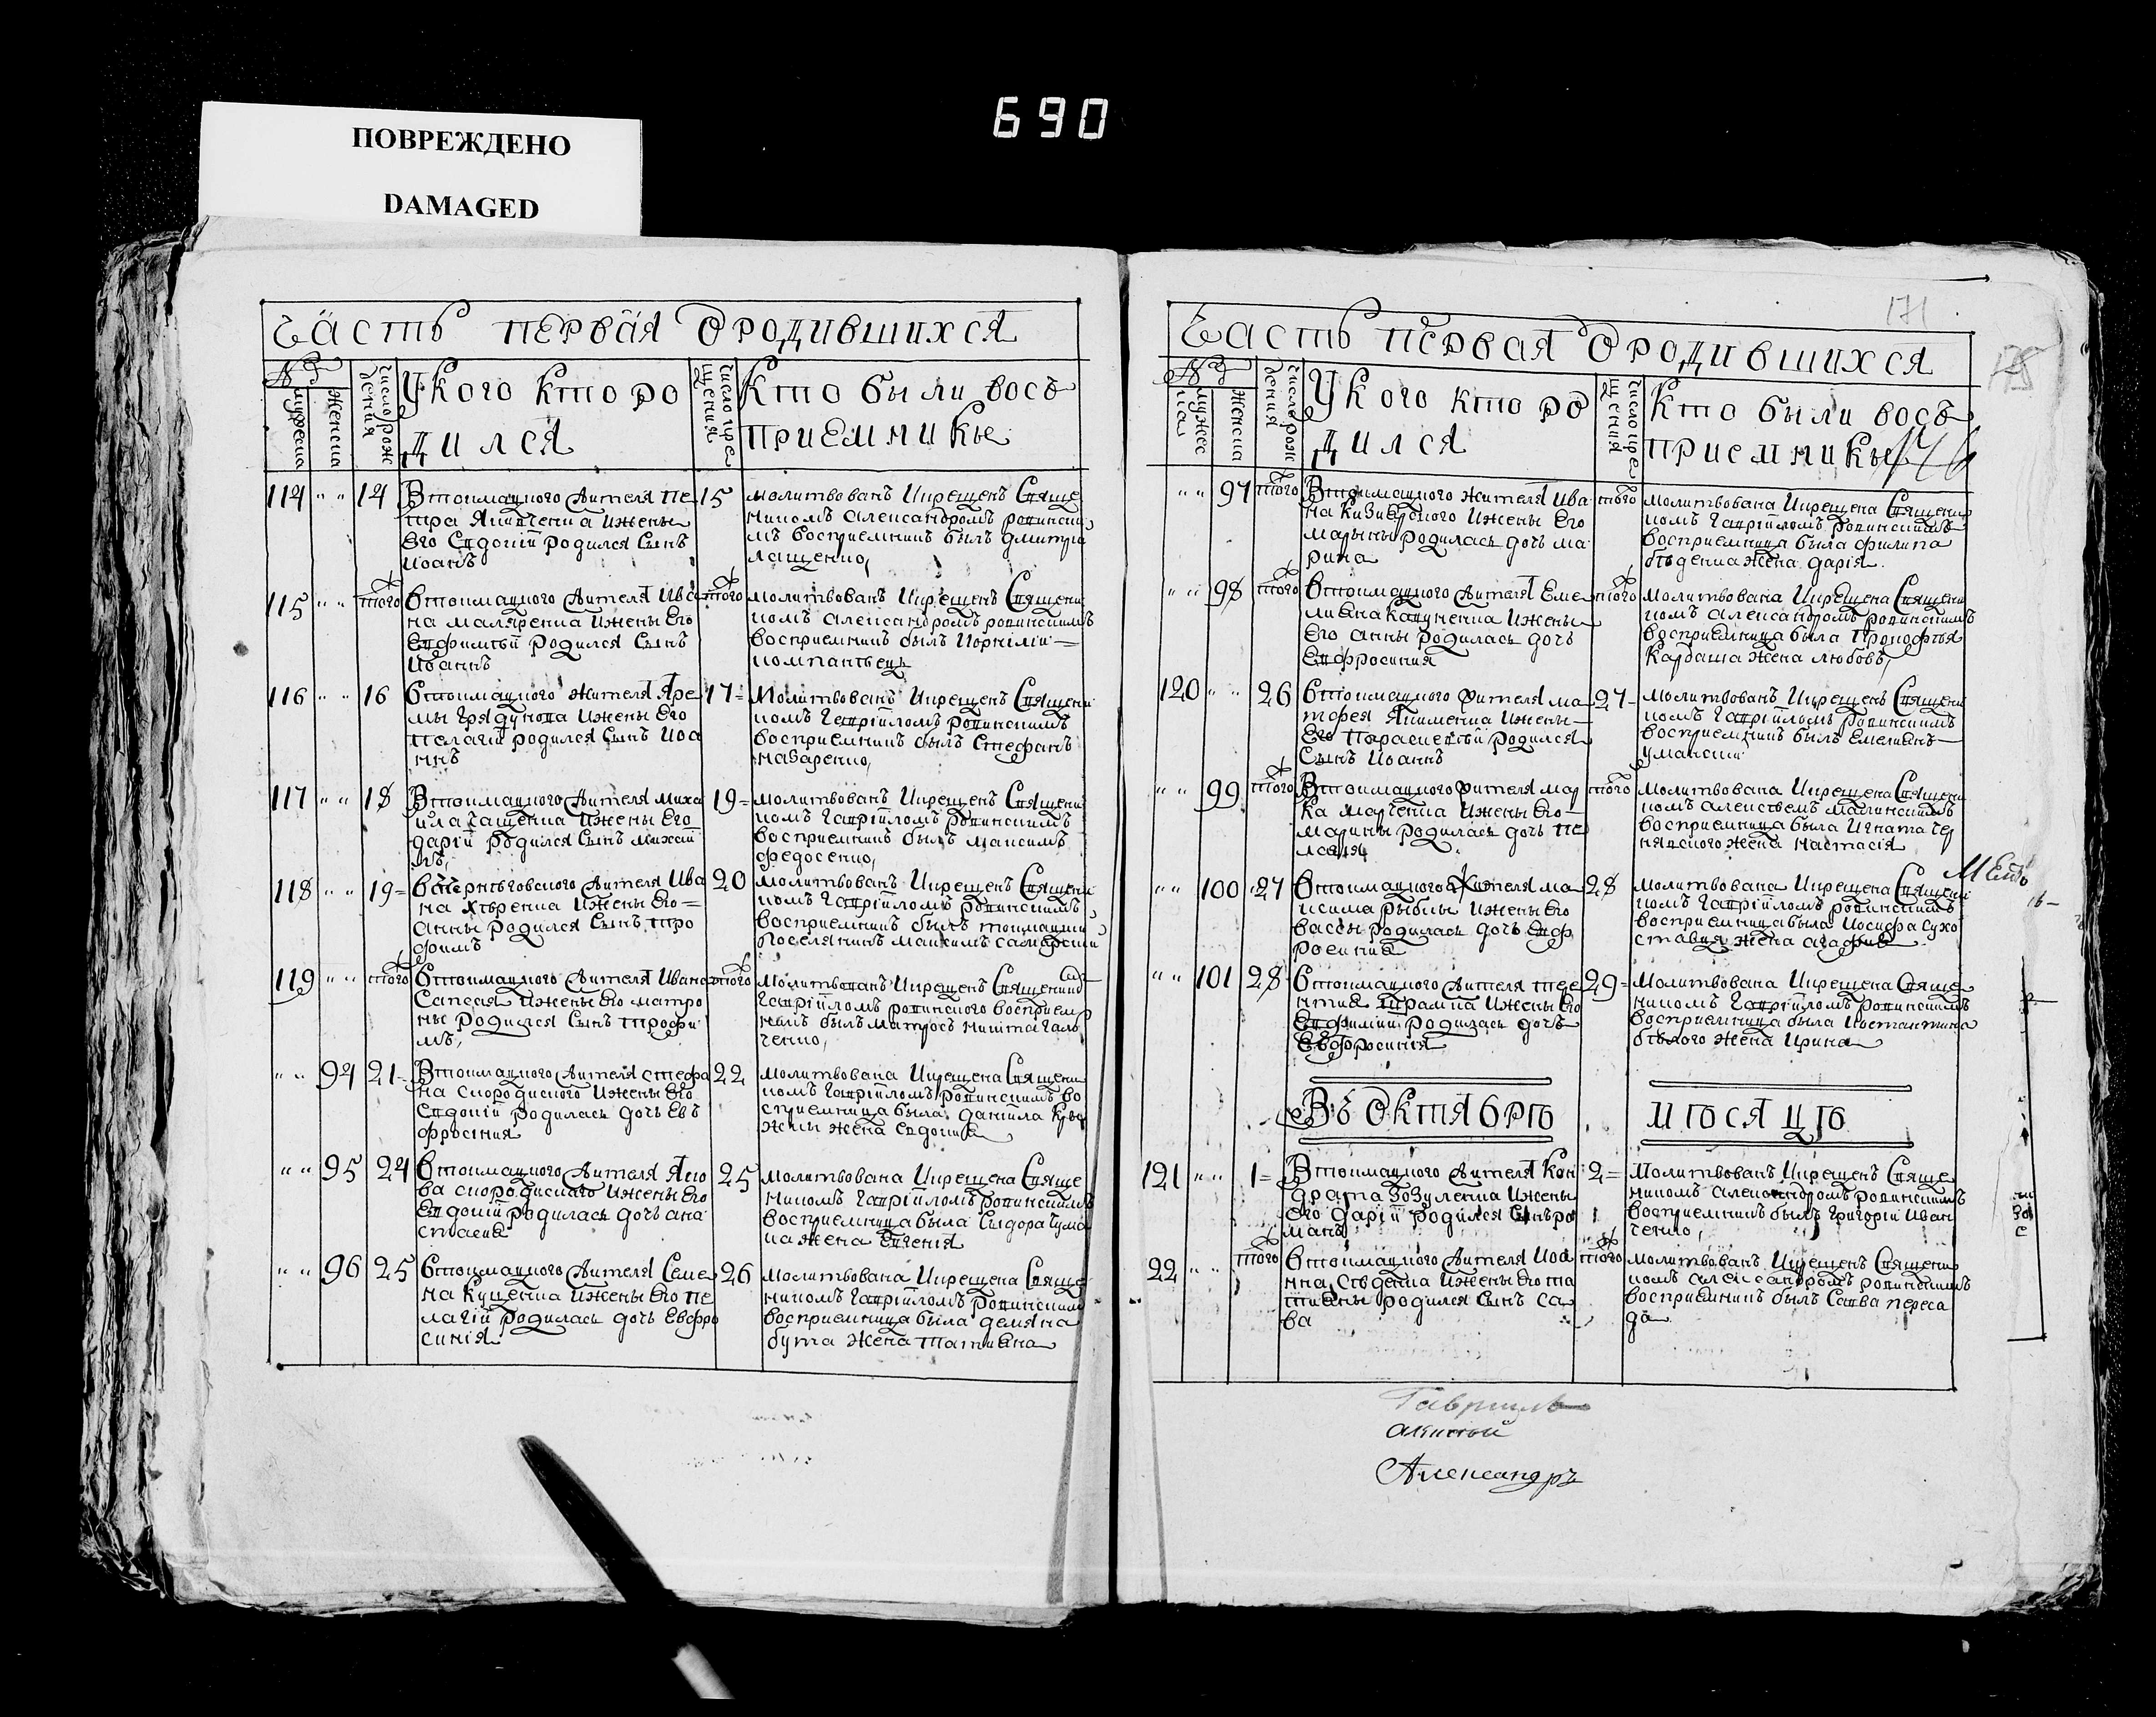 690
ПОВРЕЖДЕНО
DAMAGED
Часть первая о родившихся
№
мужеска
женска
число рож
дения
У кого кто ро
дился
число кре
щения
Кто были вос
приемники
114 " " 14
В токмацкого жителя Пе
тра Якивченка и жены
его Евдокіи родился сынъ
Иоанъ
15
молитвованъ и крещенъ Свяще
никомъ Александромъ
мъ восприемникъ былъ Дмитрій
лащенко,
115 " " того
в токмацкого жителя Ива
на маляренка и жены его
Евфиміи родился сынъ
Иоаннъ
того
молитвованъ и крещенъ Священи
комъ Александромъ ровинскимъ
восприемникъ былъ Корнілій
компанѣецъ
116 " " 16
в токмацкого жителя Яре
мы Грядунова и жены его
пелагіи родился сынъ Иоа
ннъ
17
Молитвованъ и крещенъ Священи
комъ Гавріиломъ ровинскимъ
восприемникъ былъ Стефанъ
назаренко,
117 " " 18
В токмацкого жителя миха
ила Чащенка и жены его
даріи родился сынъ михаи
лъ,
19
молитвованъ и крещенъ Священи
комъ Гавріиломъ ровинскимъ
восприемникъ былъ максимъ
федосенко,
118 " " 19
в черниговского жителя Ива
на хѣренка и жены его
анны родился сынъ тро
фимъ
20
молитвованъ и крещенъ Священи
комъ Гавріиломъ ровинскимъ
восприемникъ былъ токмацкій
поселянинъ максимъ самарскій
119 " " того
в токмацкого жителя Ивана
Сапсая и жены его матро
ны родился сынъ трофи
мъ,
того
молитвованъ и крещенъ Священико
Гавріиломъ ровинского восприем
никъ былъ матросъ никита гало
ченко,
" " 94 21
В токмацкого жителя стефа
на скородиского и жены его
Евдокіи родилась дочь Ев
фросинія
22
молитвована и крещена Священи
комъ Гавріиломъ ровинскимъ во
сприемница была даніила
жена евдокия
" " 95 24
в токмацкого жителя Яко
ва скородиского и жены его
Евдокіи родилась дочь ана
стасия
25
молитвована и крещена Свяще
никомъ Гавріиломъ ровинскимъ
восприемница была Сидора чума
ка жена Евгенія
" " 96 25
в токмацкого жителя Семе
на Куценка и жены его пе
лагіи родилась дочь Евфро
синія
26
молитвована и крещена Свяще
никомъ Гавріиломъ ровинскимъ
восприемница была демяна
бута жена татияна
171
175
Часть первая о родившихся
№
мужес
ка
женска
число рож
дения
У кого кто ро
дился
число кре
щения
Кто были вос
приемники
176
" " 97 того
В токмацкого жителя Ива
на кизиярского и жены его
марыны родилась дочь ма
рина
того
молитвована и крещена Священи
комъ Гавріиломъ ровинскимъ
восприемница была филипа
бѣденка жена дарія
" " 98 того
в токмацкого жителя Еме
лияна кацуненка и жены
его анны родилась дочь
Евфросиния
того
молитвована и крещена Священи
комъ Александромъ ровинскимъ
восприемница была прокофѣя
Кардаша жена любовь,
120 " " 26
в токмацкого жителя ма
тфея Якименка и жены
его параскевіи родился
сынъ Иоаннъ
27
молитвованъ и крещенъ Священи
комъ Гавріиломъ ровинскимъ
восприемникъ былъ Емелиянъ
уманскій
" " 99 того
В токмацкого жителя мар
ка марченка и жены его
марины родилась дочь пе
лагия
того
молитвована и крещена Священи
комъ алексѣемъ
восприемница была Игната чер
нявского жена настасія
" " 100 27
в токмацкого жителя ма
ксима рыбки и жены его
вассы родилась дочь евф
росиния
28
молитвована и крещена Священи
комъ Гавріиломъ ровинскимъ
восприемница была Иосифа сухо
ставця жена агафия
" " 101 28
в токмацкого жителя тере
нтия и жены его
Евфиміи родилась дочь
Евфросиния
29
молитвована и крещена Свяще
никомъ Гавріиломъ ровинскимъ
восприемница была Костантина
бѣлого жена ирина
Въ Октябрѣ мѣсяцѣ
121 " " 1
В токмацкого жителя Кон
драта Зозуленка и жены
его даріи родился сынъ ро
манъ
2
молитвованъ и крещенъ Свяще
никомъ Александромъ ровинскимъ
восприемникъ былъ григорій иван
ченко,
22 " " того
в токмацкого жителя Иоа
нна Сѣденка и жены его та
тияны родился сынъ са
ва
того
молитвованъ и крещенъ Священи
комъ александромъ ровинскимъ
восприемникъ былъ Савва переса
да
Гавриилъ
Александръ